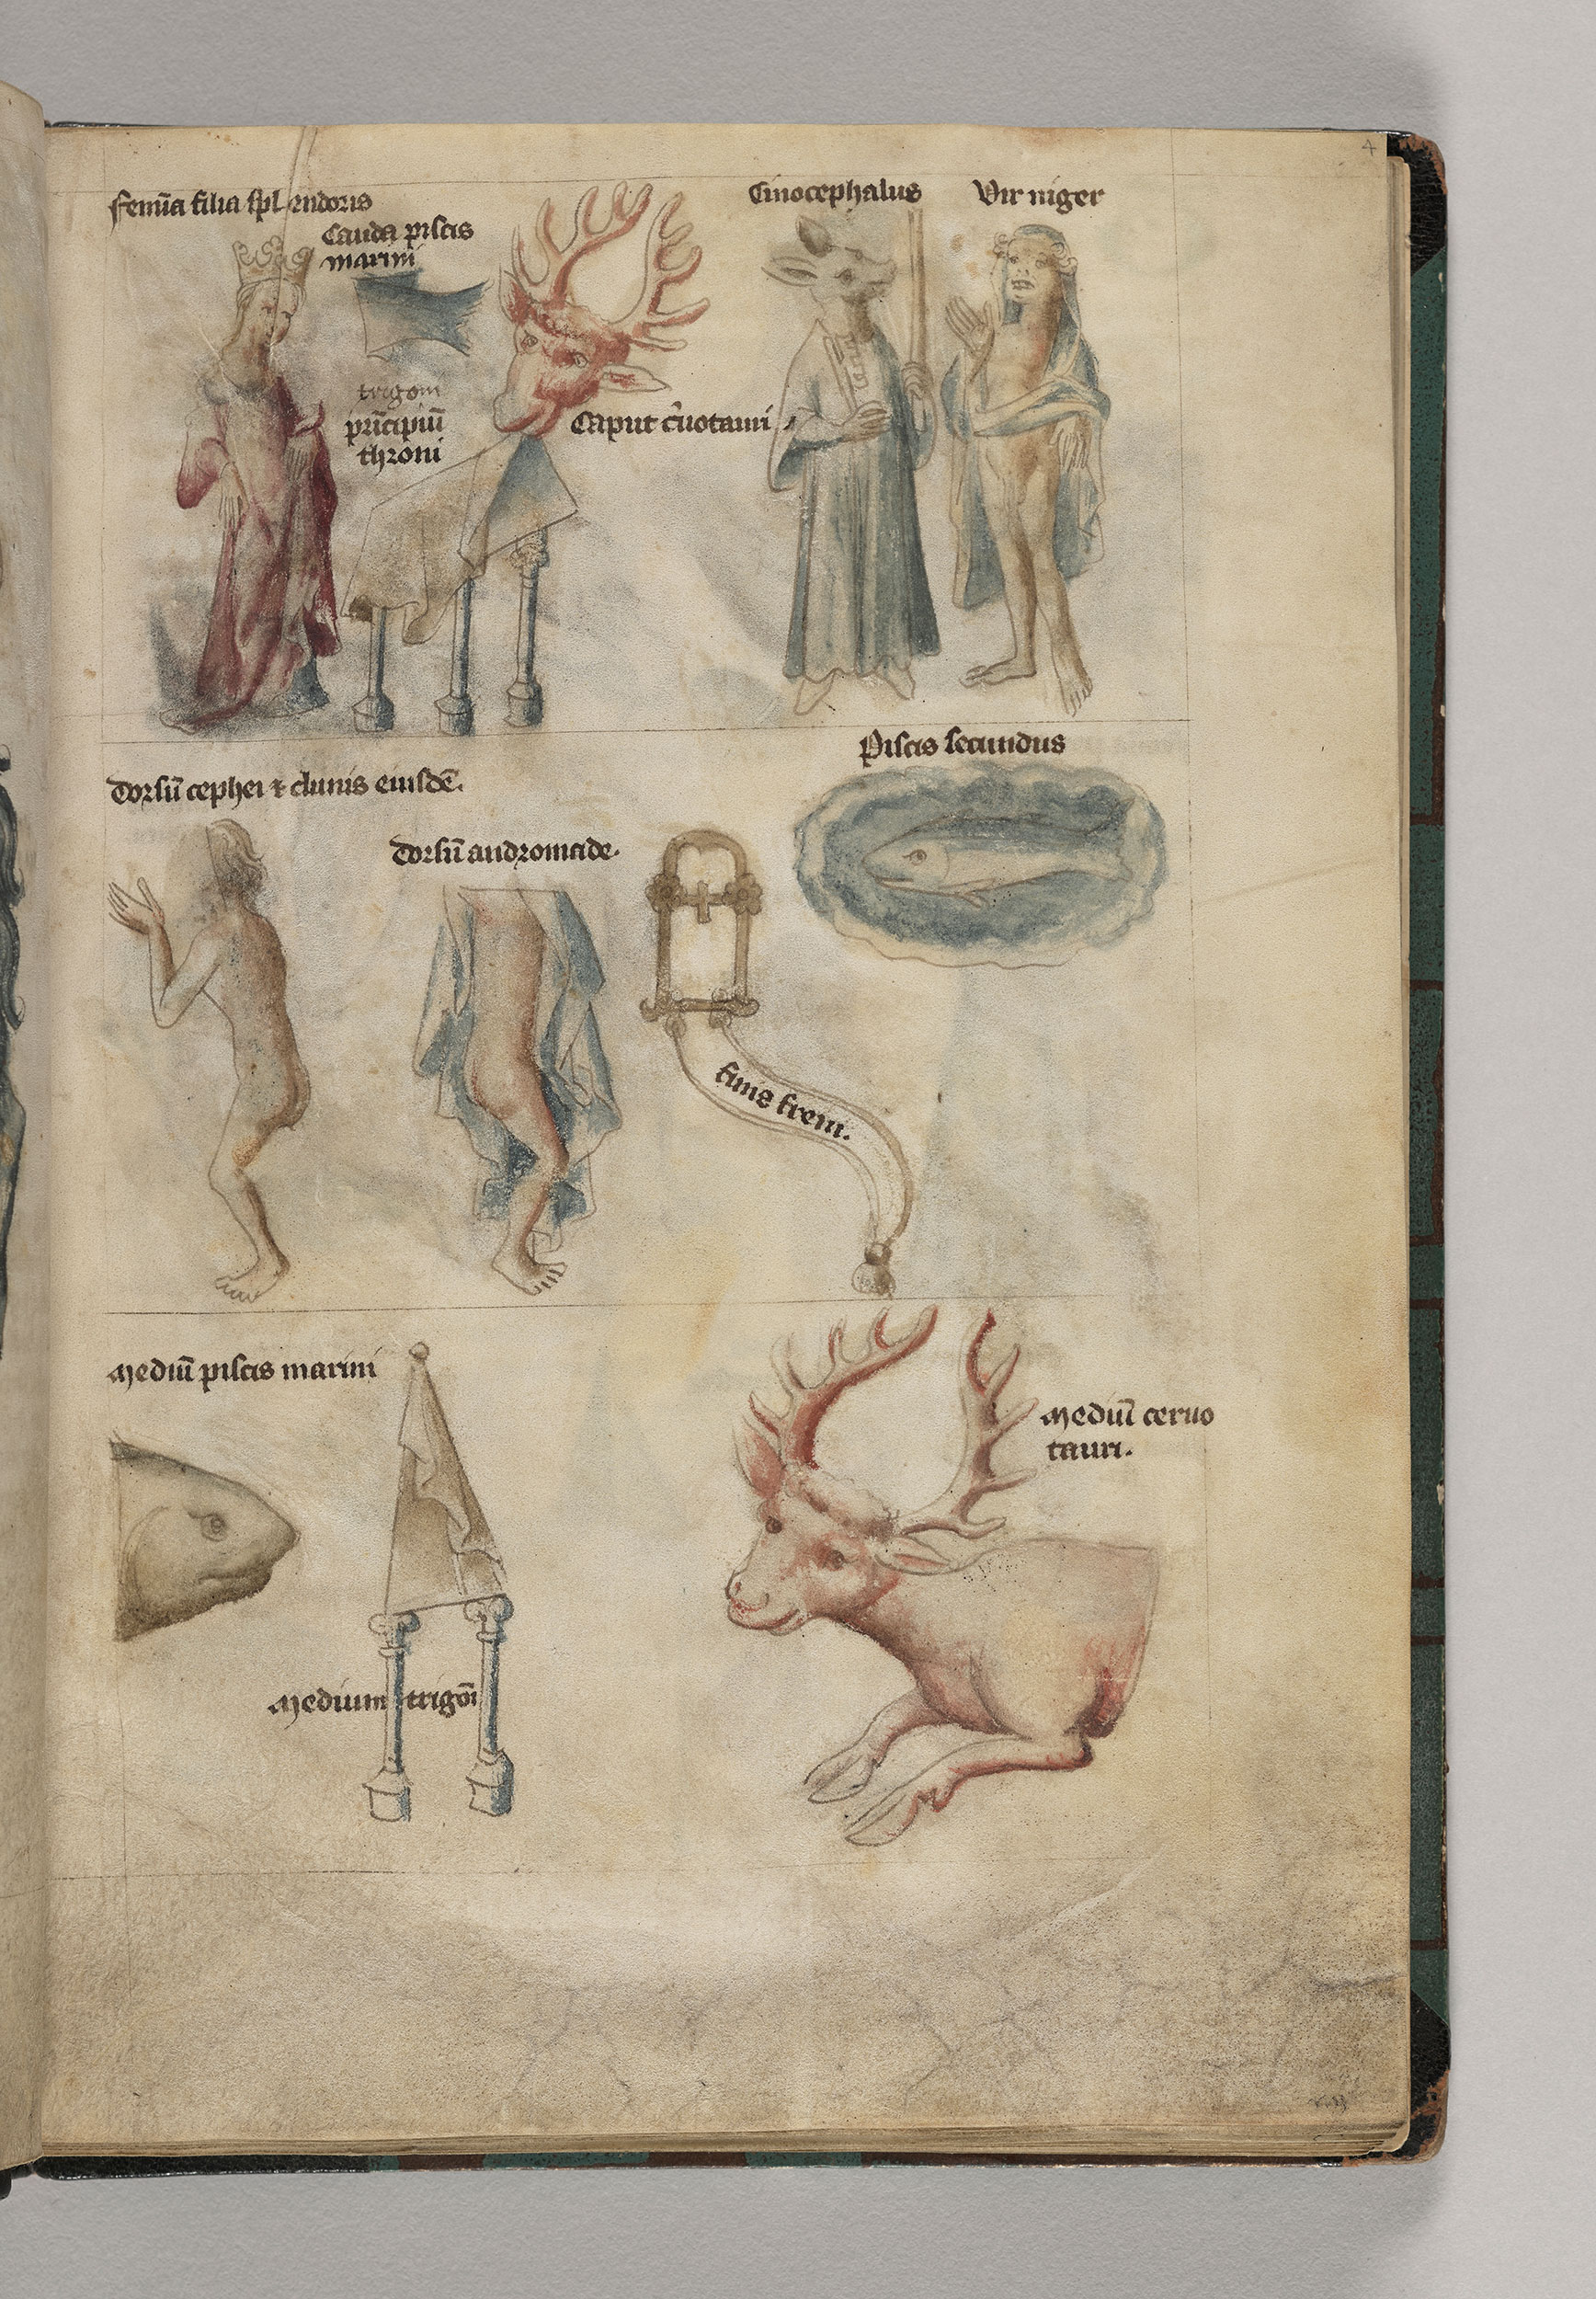 4
femīa filia splendoris
Cauda piscis
marini
trigoni
prīcipiū
throni
Caput c̄uotauri
Cinocephalus
Vir niger
Piscis secundus
Dorsū cephei ⁊ clunis eiusdē.
Dorsū andromade.
finis freni.
Mediū piscis marini
Medium trigōi
Mediū ceruo
tauri.